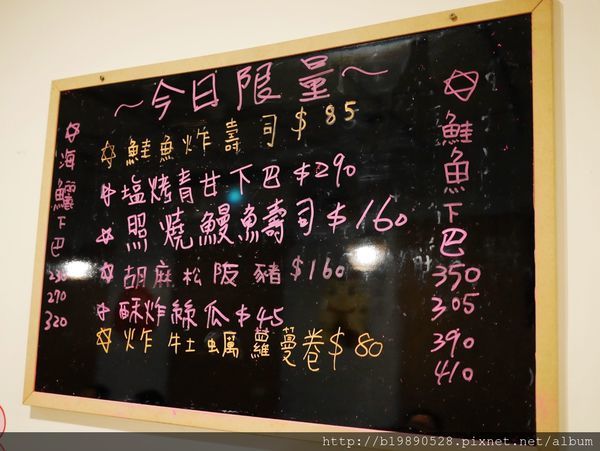 ~今日限量~
✡鮭魚炸壽司$85
✡塩烤青甘下巴$290
✡照燒鰻魚壽司$160
✡胡麻松阪豬$160
✡酥炸絲瓜$45
✡炸牡蠣蘿蔓卷$80
✡海鱺下巴
230
270
320
✡鮭魚下巴
350
305
390
410
http://b19890528.pixnet.net/album